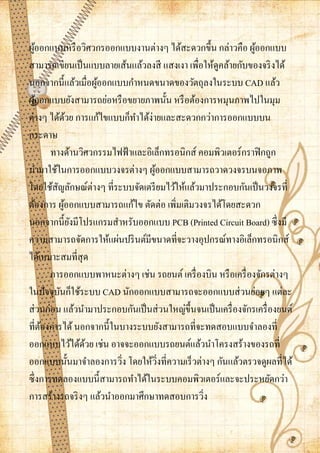 ผู้ออกแบบหรือวิศวกรออกแบบงานต่างๆ ได้สะดวกขึ้น กล่าวคือ ผู้ออกแบบ
สามารถเขียนเป็นแบบลายเส้นแล้วลงสี แสงเงา เพื่อให้ดูคล้ายกับของจริงได้
นอกจากนี้แล้วเมื่อผู้ออกแบบกำหนดขนาดของวัตถุลงในระบบ CAD แล้ว
ผู้ออกแบบยังสามารถย่อหรือขยายภาพนั้น หรือต้องการหมุนภาพไปในมุม
ต่างๆ ได้ด้วย การแก้ไขแบบก็ทำได้ง่ายและสะดวกกว่าการออกแบบบน
กระดาษ
ทางด้านวิศวกรรมไฟฟ้าและอิเล็กทรอนิกส์ คอมพิวเตอร์กราฟิกถูก
นำมาใช้ในการออกแบบวงจรต่างๆ ผู้ออกแบบสามารถวาดวงจรบนจอภาพ
โดยใช้สัญลักษณ์ต่างๆ ที่ระบบจัดเตรียมไว้ให้แล้วมาประกอบกันเป็นวงจรที่
ต้องการ ผู้ออกแบบสามารถแก้ไข ตัดต่อ เพิ่มเติมวงจรได้โดยสะดวก
นอกจากนี้ยังมีโปรแกรมสำหรับออกแบบ PCB (Printed Circuit Board) ซึ่งมี
ความสามารถจัดการให้แผ่นปรินต์มีขนาดที่จะวางอุปกรณ์ทางอิเล็กทรอนิกส์
ได้เหมาะสมที่สุด
การออกแบบพาหนะต่างๆ เช่น รถยนต์ เครื่องบิน หรือเครื่องจักรต่างๆ
ในปัจจุบันก็ใช้ระบบ CAD นักออกแบบสามารถจะออกแบบส่วนย่อยๆ แต่ละ
ส่วนก่อน แล้วนำมาประกอบกันเป็นส่วนใหญ่ขึ้นจนเป็นเครื่องจักรเครื่องยนต์
ที่ต้องการได้ นอกจากนี้ในบางระบบยังสามารถที่จะทดสอบแบบจำลองที่
ออกแบบไว้ได้ด้วย เช่น อาจจะออกแบบรถยนต์แล้วนำโครงสร้างของรถที่
ออกแบบนั้นมาจำลองการวิ่ง โดยให้วิ่งที่ความเร็วต่างๆ กันแล้วตรวจดูผลที่ได้
ซึ่งการทดลองแบบนี้สามารถทำได้ในระบบคอมพิวเตอร์และจะประหยัดกว่า
การสร้างรถจริงๆ แล้วนำออกมาศึกษาทดสอบการวิ่ง